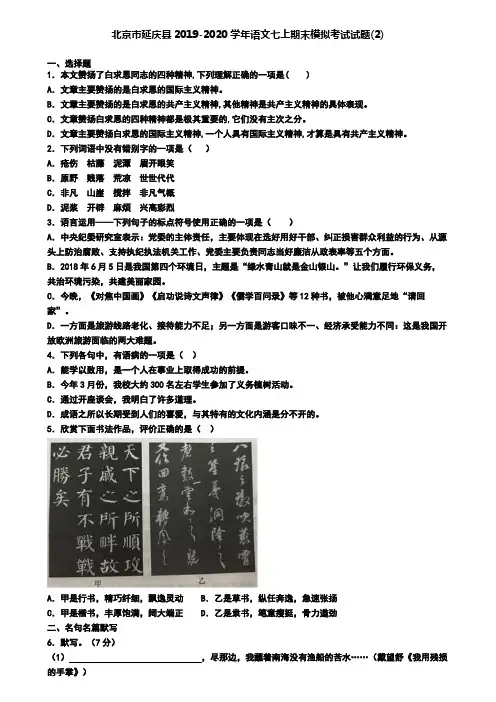 北京市延庆县2019-2020学年语文七上期末模拟考试试题(2)
一、选择题
1．本文赞扬了白求恩同志的四种精神,下列理解正确的一项是(    )
A．文章主要赞扬的是白求恩的国际主义精神。
B．文章主要赞扬的是白求恩的共产主义精神,其他精神是共产主义精神的具体表现。
C．文章赞扬白求恩的四种精神都是极其重要的,它们没有主次之分。
D．文章主要赞扬白求恩的国际主义精神,一个人具有国际主义精神,才算是具有共产主义精神。
2．下列词语中没有错别字的一项是（  ）
A．疮伤  枯藤  泥潭  眉开眼笑
B．原野  贱落  荒凉  世世代代
C．非凡  山崖  搅拌  非凡气慨
D．泥浆  开辟  麻烦  兴高彩烈
3．语言运用——下列句子的标点符号使用正确的一项是（  ）
A．中央纪委研究室表示：党委的主体责任，主要体现在选好用好干部、纠正损害群众利益的行为、从源
头上防治腐败、支持执纪执法机关工作、党委主要负责同志当好廉洁从政表率等五个方面。
B．2018年6月5日是我国第四个环境日，主题是“绿水青山就是金山银山。”让我们履行环保义务，
共治环境污染，共建美丽家园。
C．今晚，《对焦中国画》《启功说诗文声律》《儒学百问录》等12种书，被他心满意足地“请回
家”。
D．一方面是旅游线路老化、接待能力不足；另一方面是游客口味不一、经济承受能力不同：这是我国开
放欧洲旅游面临的两大难题。
4．下列各句中，有语病的一项是（  ）
A．能学以致用，是一个人在事业上取得成功的前提。
B．今年3月份，我校大约300名左右学生参加了义务植树活动。
C．通过开座谈会，我明白了许多道理。
D．成语之所以长期受到人们的喜爱，与其特有的文化内涵是分不开的。
5．欣赏下面书法作品，评价正确的是（  ）
天下之所顺攻
亲戚之所畔故
君子有不战战
必胜矣
甲
乙
A．甲是行书，精巧纤细，飘逸灵动  B．乙是草书，纵任奔逸，急速张扬
C．甲是楷书，丰厚饱满，阔大端正  D．乙是隶书，笔重瘦挺，骨力遒劲
二、名句名篇默写
6．默写。（7分）
（1）____________________，尽那边，我蘸着南海没有渔船的苦水……（戴望舒《我用残损
的手掌》）